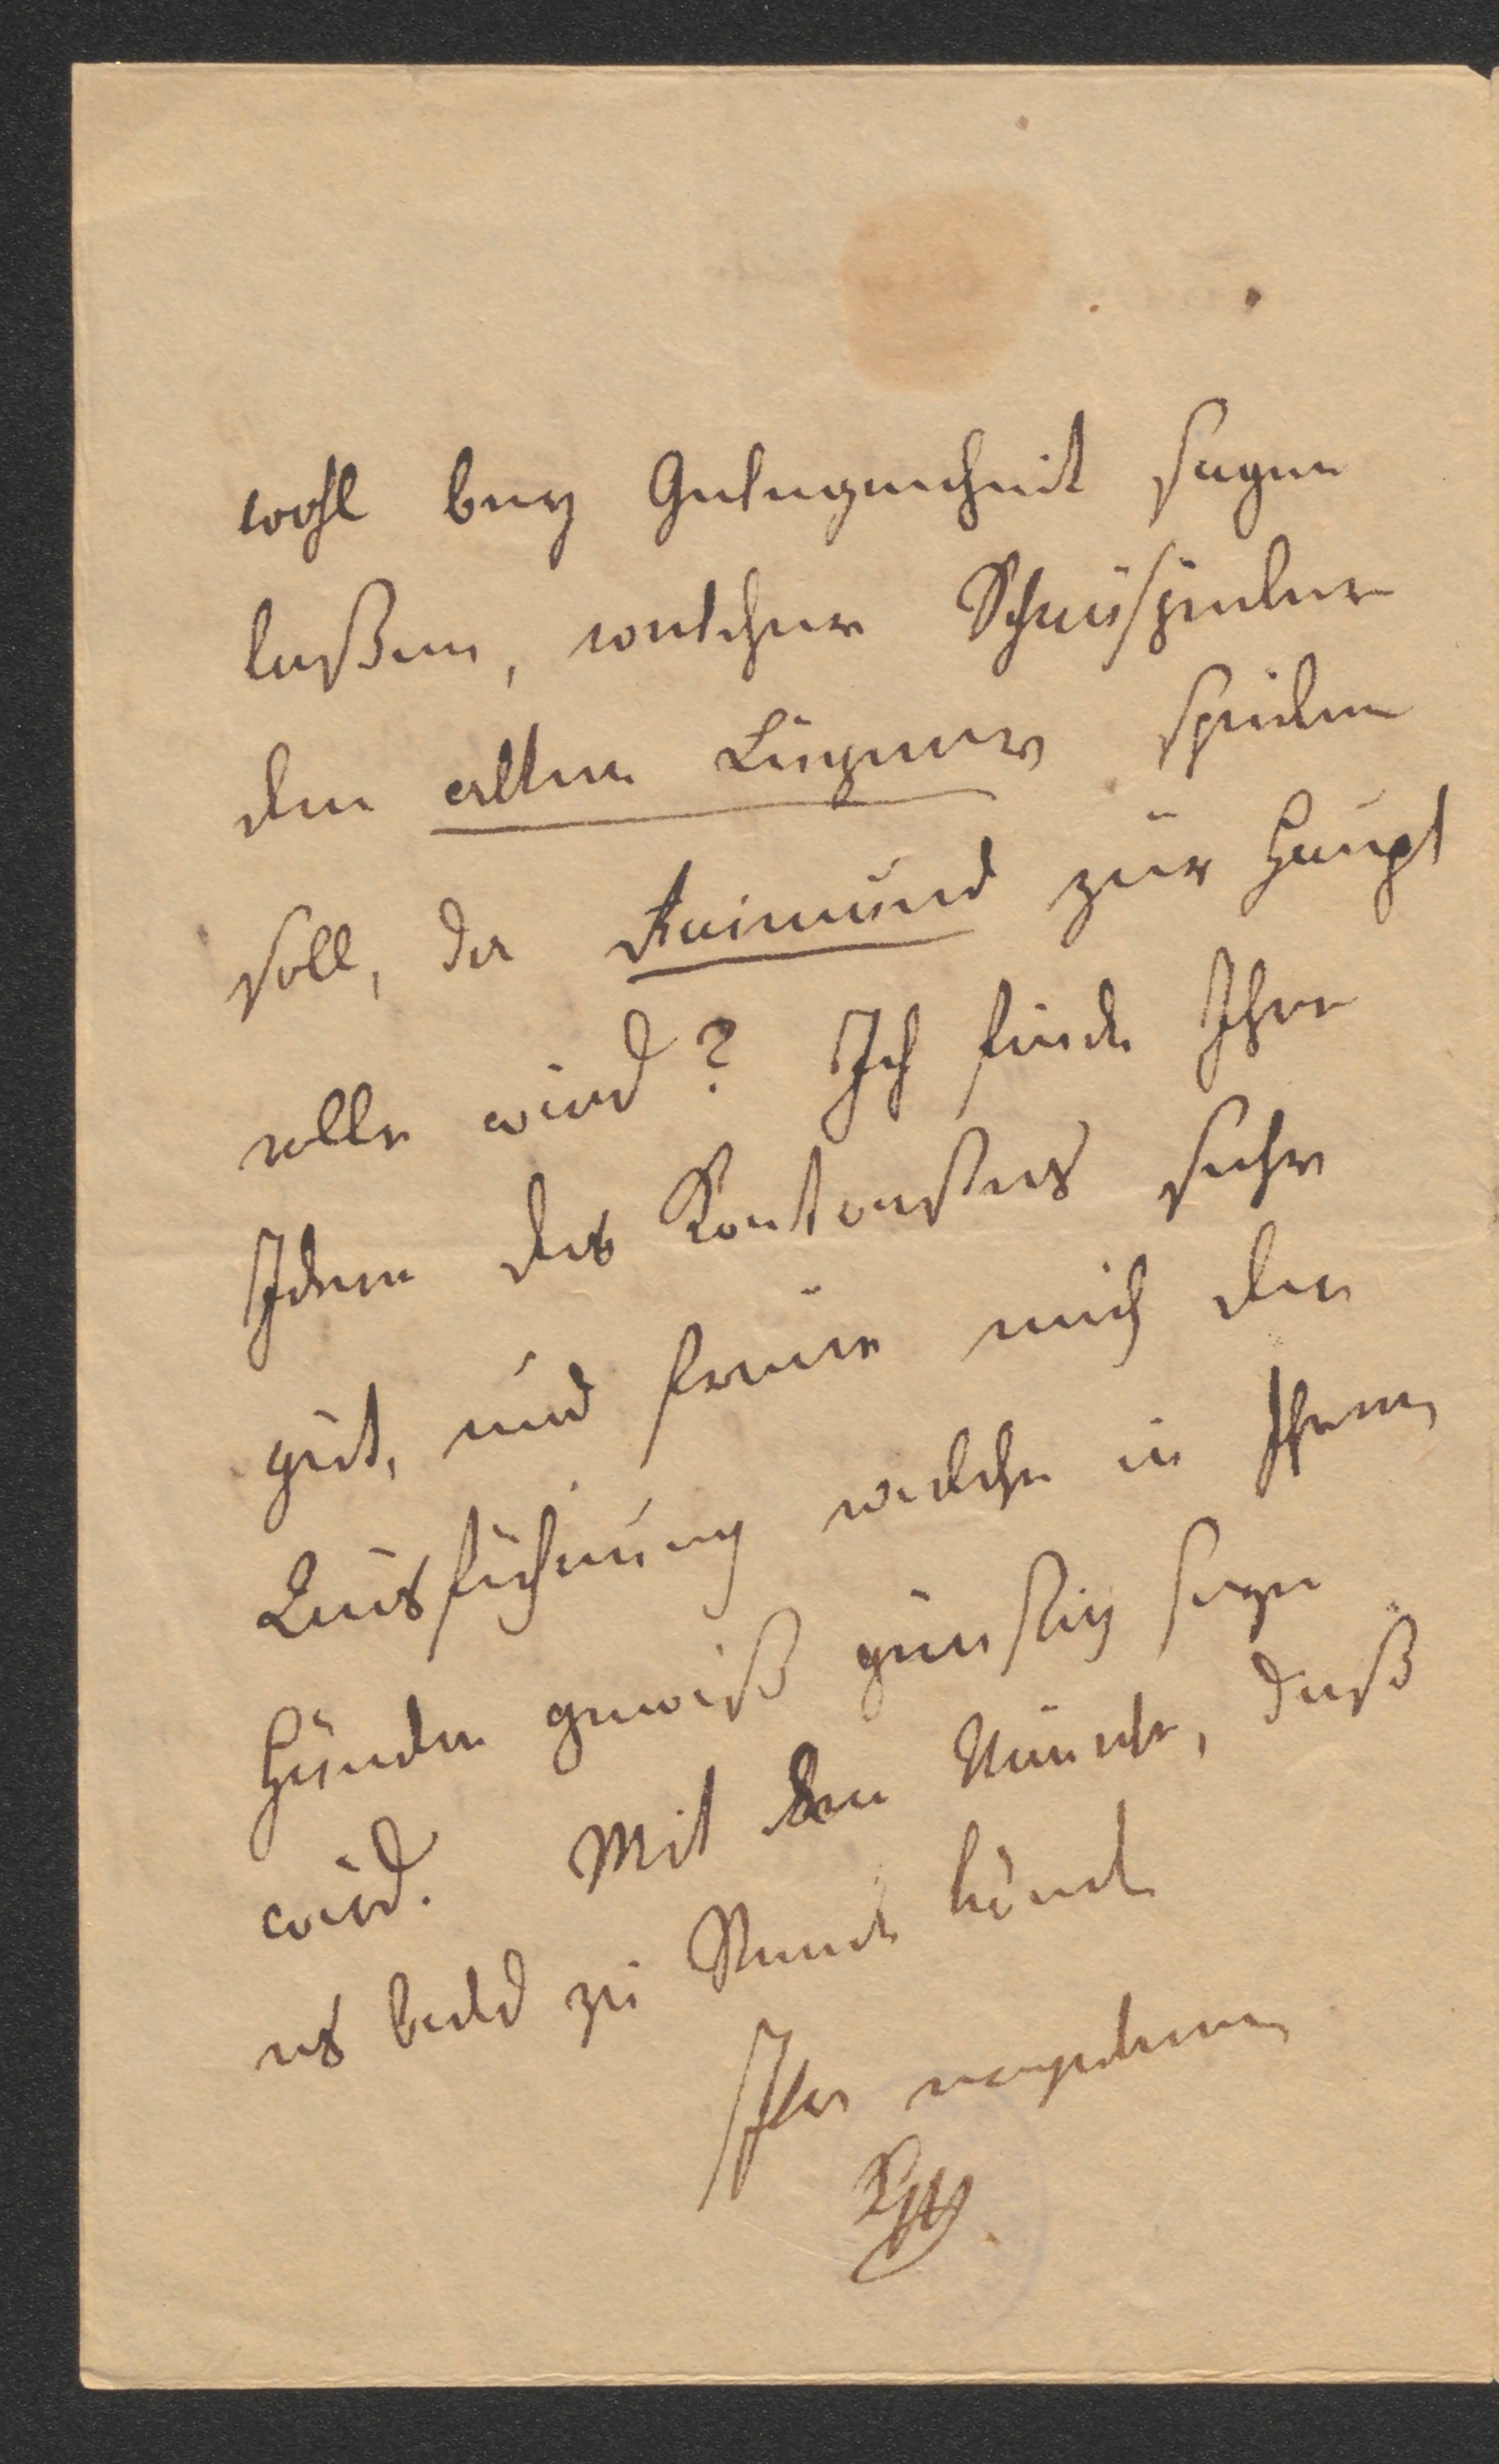 wohl bey Gelegenheit sagen
laßen, welcher Schauspieler
den alten Lügner spielen
soll, da Raimund zur Haupt
rolle wird? Ich finde Ihre
Ideen des Kontrastes sehr
gut, und freue mich der
Ausführung welche in Ihren
Händen gewiß günstig seyn
wird. Mit dem Wunsche, daß
es bald zu Stande käme
Ihr ergebener